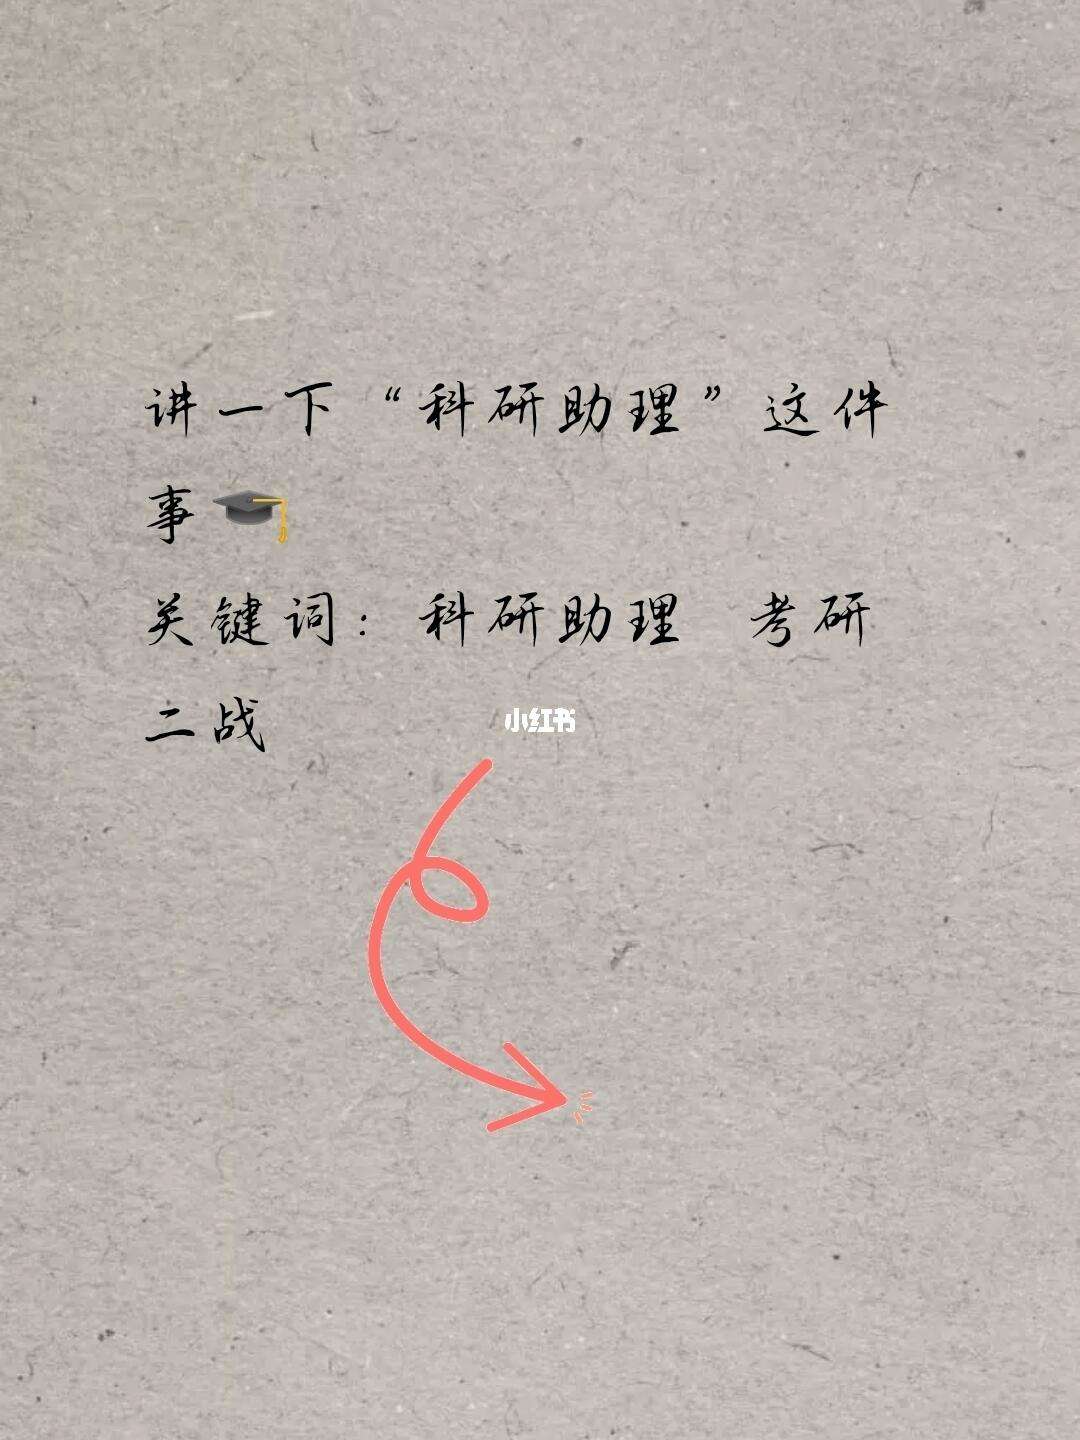 讲一下“科研助理”这件
事🎓
关键词：科研助理 考研
二战
小红书